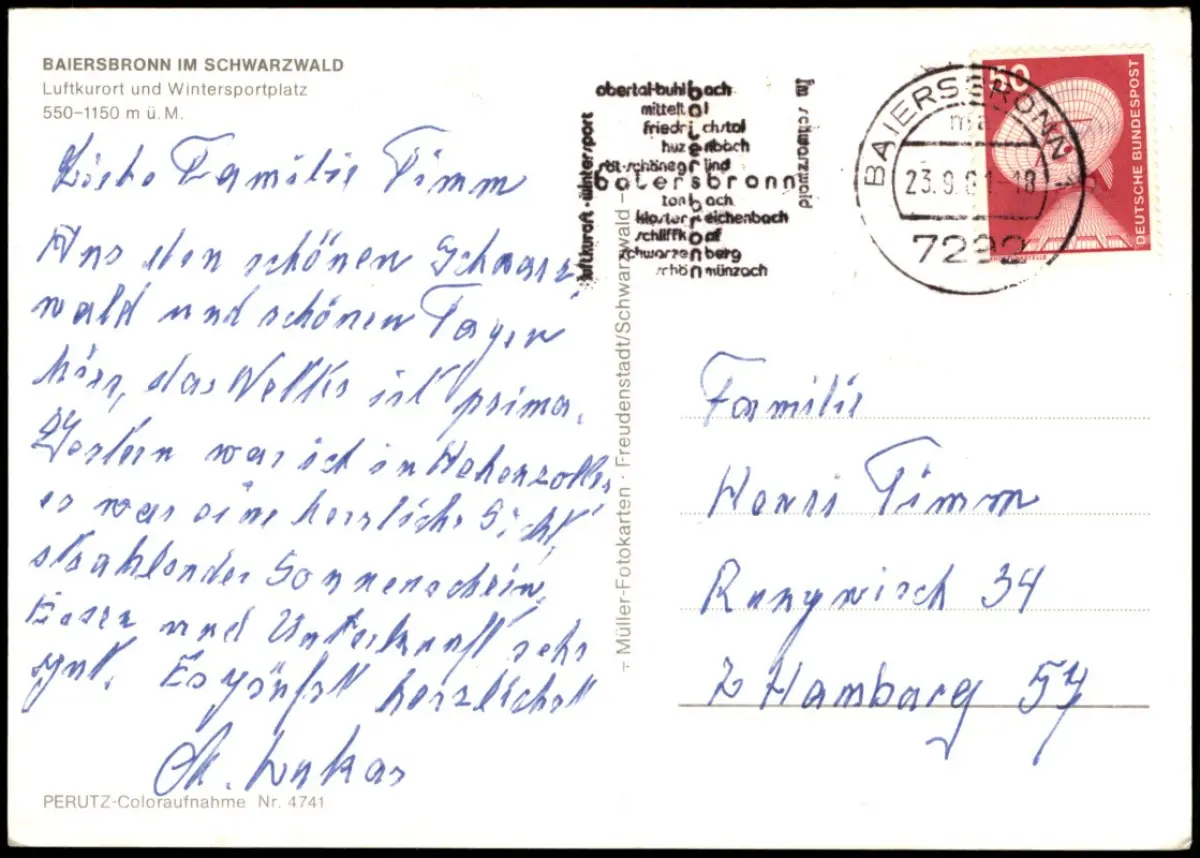 BAIERSBRONN IM SCHWARZWALD
Luftkurort und Wintersportplatz
550–1150 m ü. M.
Liebe Familie Timm
Aus den schönen Schwarz
wald und schönen Tagen
hier, das Wetter ist prima.
Gestern war ich in Hohenzollern
es war eine herrliche Sicht,
strahlender Sonnenschein,
Essen und Unterkunft sehr
gut. Es grüßt herzlichst
Lukas
PERUTZ-Coloraufnahme Nr. 4741
– Müller-Fotokarten · Freudenstadt/Schwarzwald –
luftkurort · wintersport
obertal·buhlbach
mitteltal
friedrichstal
huzenbach
röt·schönegründ
baiersbronn
tonbach
klosterreichenbach
schliffkopf
schwarzenberg
schönmünzach
im schwarzwald
BAIERSBRONN
23.9.81-18
7292
50
DEUTSCHE BUNDESPOST
Familie
Henri Timm
Rungwisch 34
2 Hamburg 54